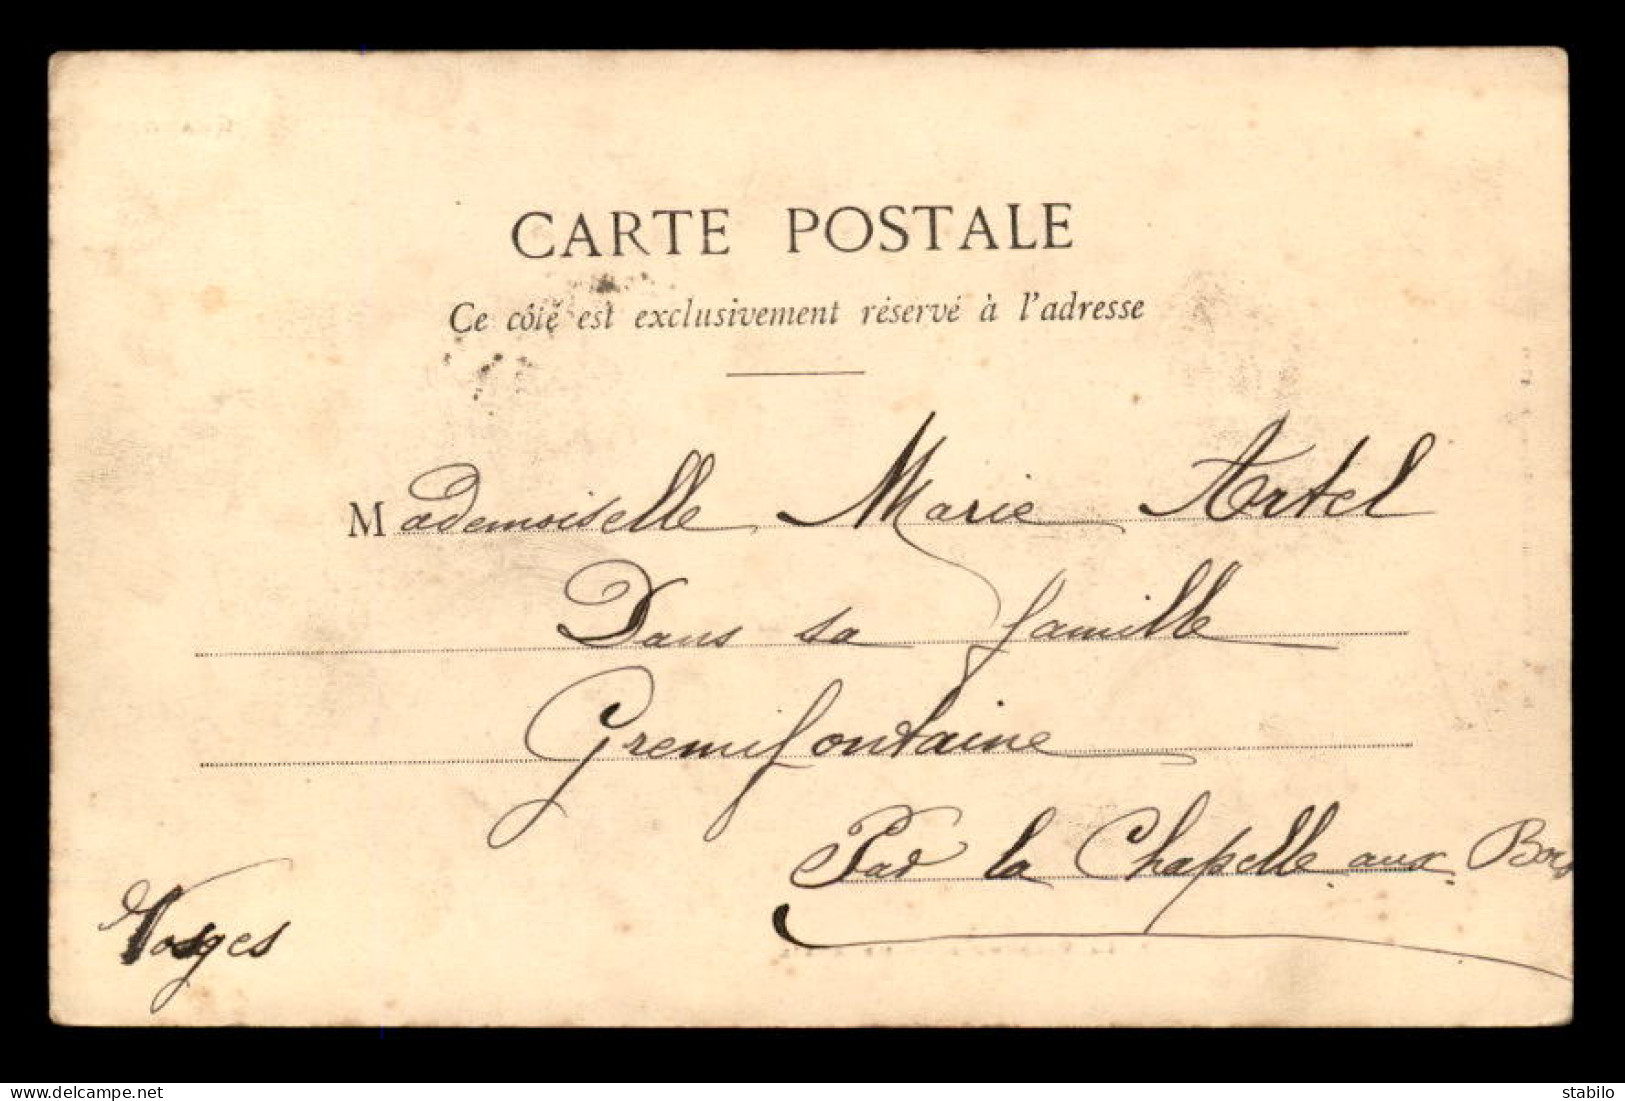 CARTE POSTALE
Ce côté est exclusivement réservé à l'adresse
Mademoiselle Marie Artel
Dans sa famille
Gremifontaine
Par la Chapelle aux Bois
Vosges
www.delcampe.net
stabilo